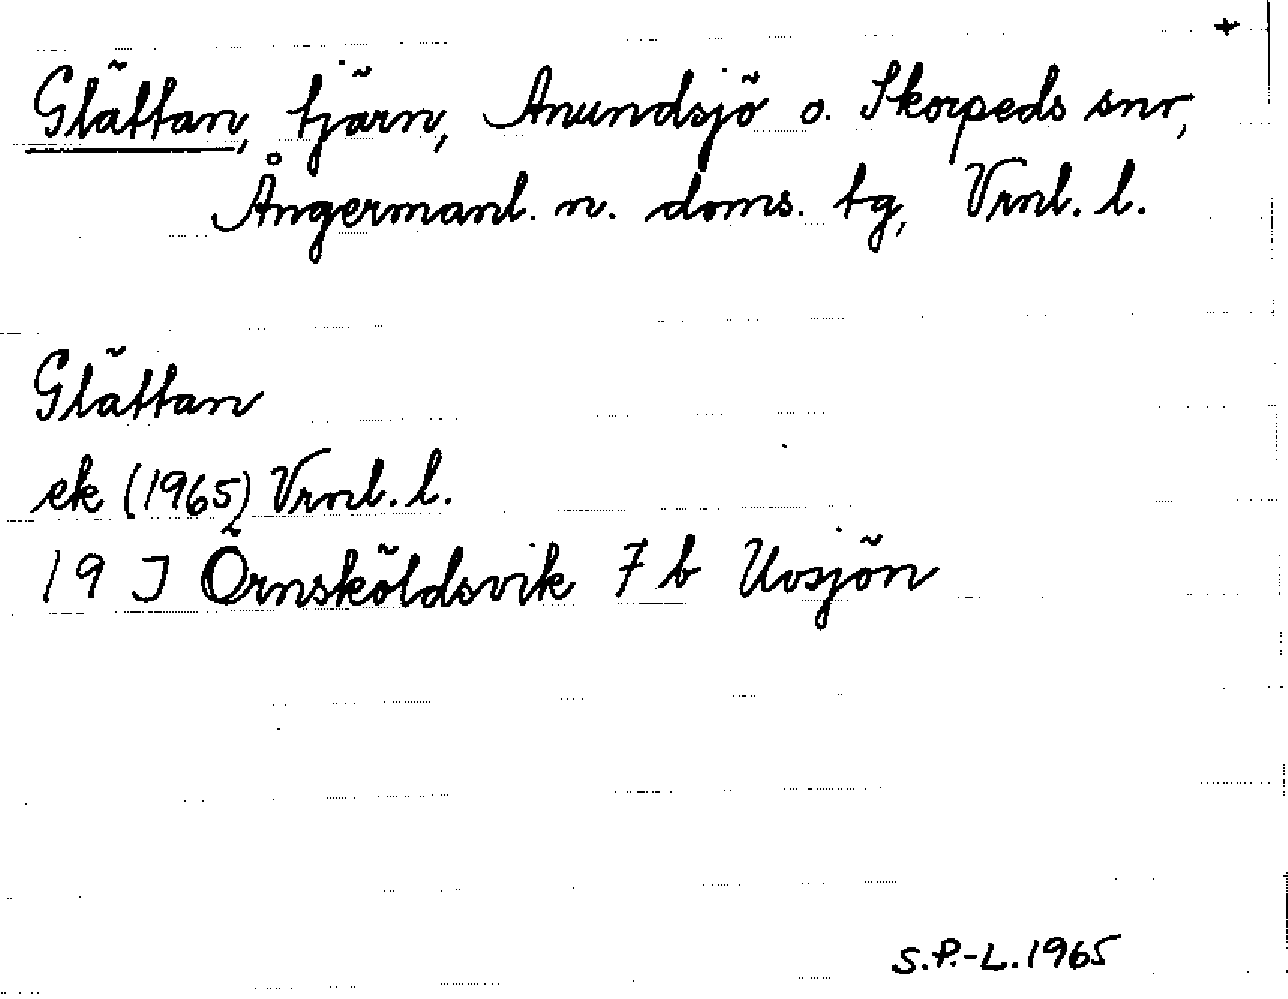 +
Glättan, tjärn, Anundsjö o. Skorpeds snr,
Ångermanl. n. doms. tg, Vrnl. l.
Glättan
ek (1965) Vrnl. l.
19 J Örnsköldsvik 7 b Uvsjön
S.P.-L. 1965